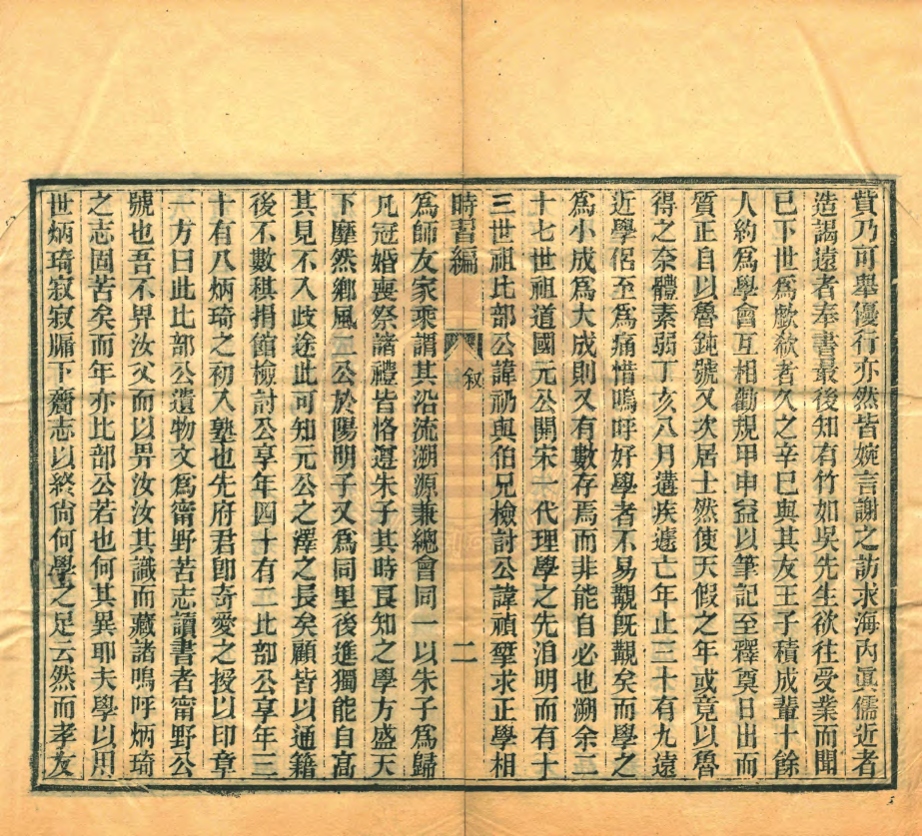 貲乃可舉優行亦然皆婉言謝之訪求海內眞儒近者
造謁遠者奉書最後知有竹如吳先生欲往受業而聞
已下世爲歔欷者久之辛巳與其友王子積成輩十餘
人約爲學會互相勸規甲申益以筆記至釋奠日出而
質正自以魯鈍號又次居士然使天假之年或竟以魯
得之奈體素弱丁亥八月遘疾遽亡年止三十有九遠
近學侶至爲痛惜嗚呼好學者不易觀旣觀矣而學之
爲小成爲大成則又有數存焉而非能自必也溯余二
十七世祖道國元公開宋一代理學之先洎明而有十
三世祖比部公諱礽與伯兄檢討公諱禎揅求正學相
時習編
敘
二
爲師友家乘謂其沿流溯源兼總會同一以朱子爲歸
凡冠婚喪祭諸禮皆恪遵朱子其時良知之學方盛天
下靡然鄉風二公於陽明子又爲同里後進獨能自高
其見不入歧途此可知元公之澤之長矣顧皆以通籍
後不數稘捐館檢討公享年四十有二比部公享年三
十有八炳琦之初入塾也先府君卽奇愛之授以印章
一方曰此比部公遺物文爲甯野苦志讀書者甯野公
號也吾不畀汝父而以畀汝汝其識而藏諸嗚呼炳琦
之志固苦矣而年亦比部公若也何其異耶夫學以用
世炳琦寂寂牖下齎志以終尙何學之足云然而孝友